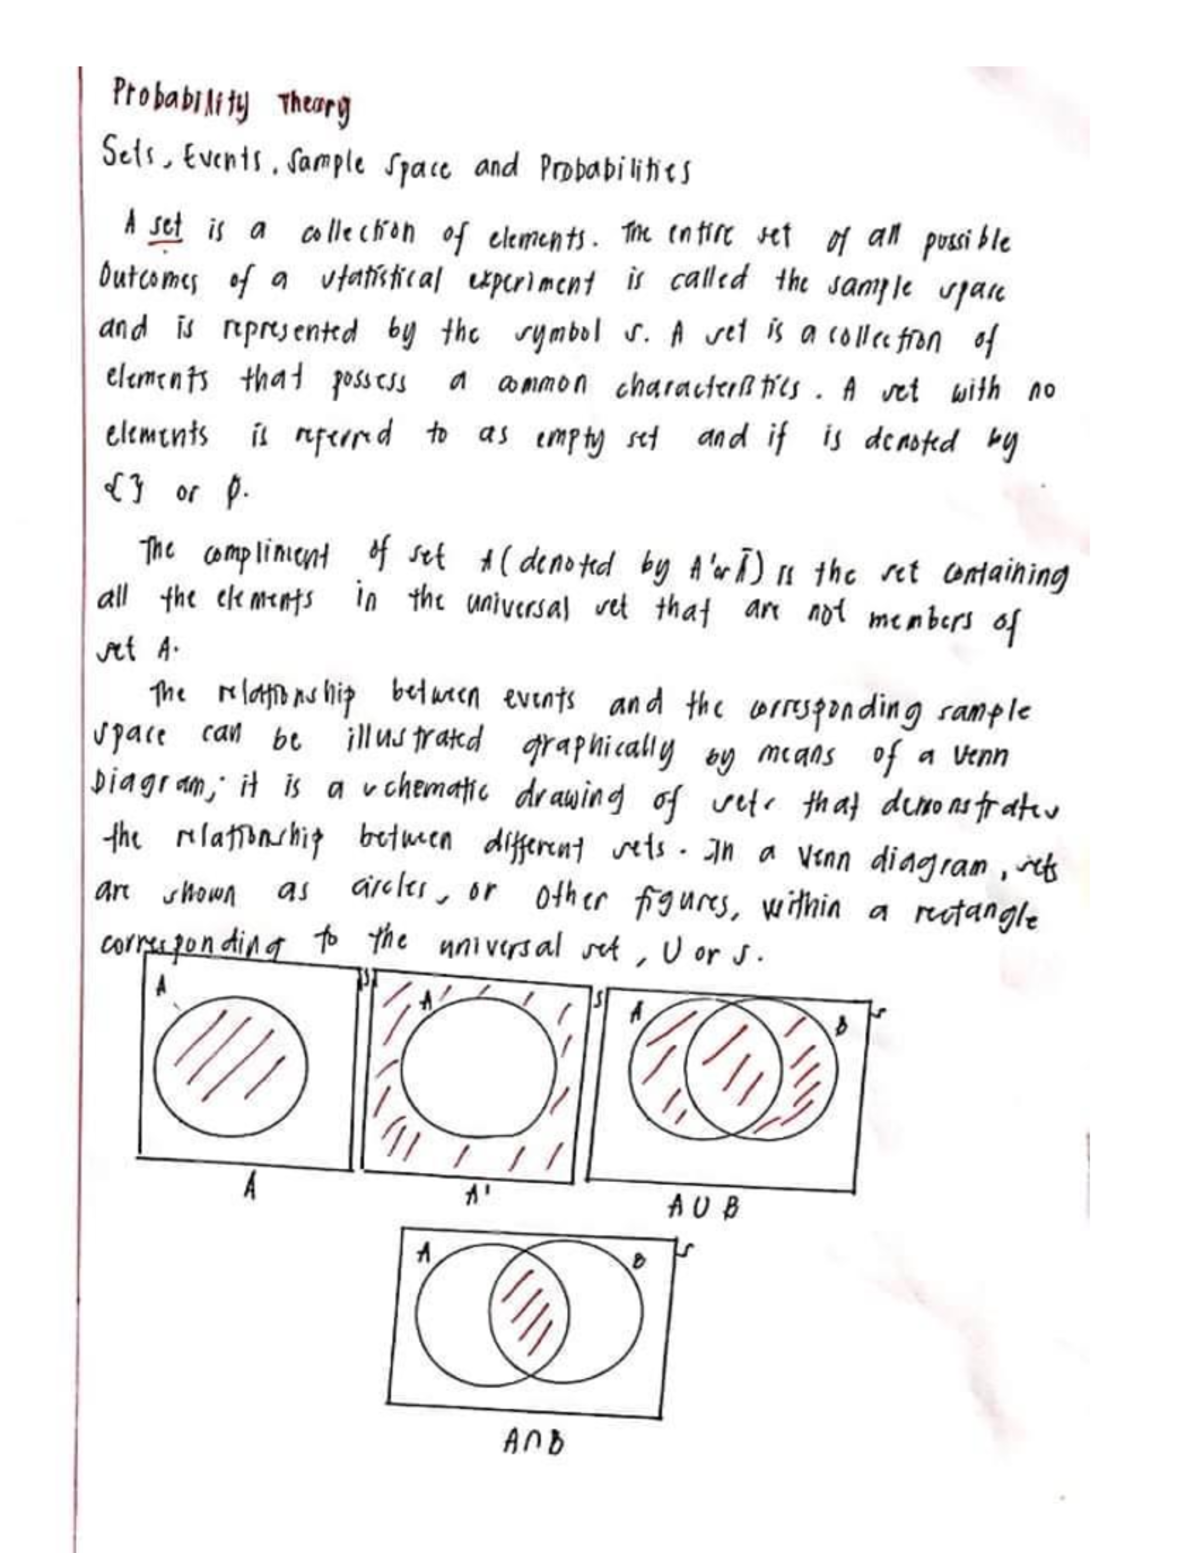 Probability Theory
Sets, Events, Sample Space and Probabilities
A set is a collection of elements. The entire set of all possible
Outcomes of a statistical experiment is called the sample space
and is represented by the symbol s. A set is a collection of
elements that possess a common characteristics. A set with no
elements is referred to as empty set and if is denoted by
{} or ϕ.
The compliment of set A (denoted by A' or Ā) is the set containing
all the elements in the universal set that are not members of
set A.
The relationship between events and the corresponding sample
space can be illustrated graphically by means of a Venn
Diagram; it is a schematic drawing of sets that demonstrates
the relationship between different sets. In a Venn diagram, sets
are shown as circles, or other figures, within a rectangle
corresponding to the universal set, U or S.
A S A S A B S
A A' A ∪ B
A B S
A∩B